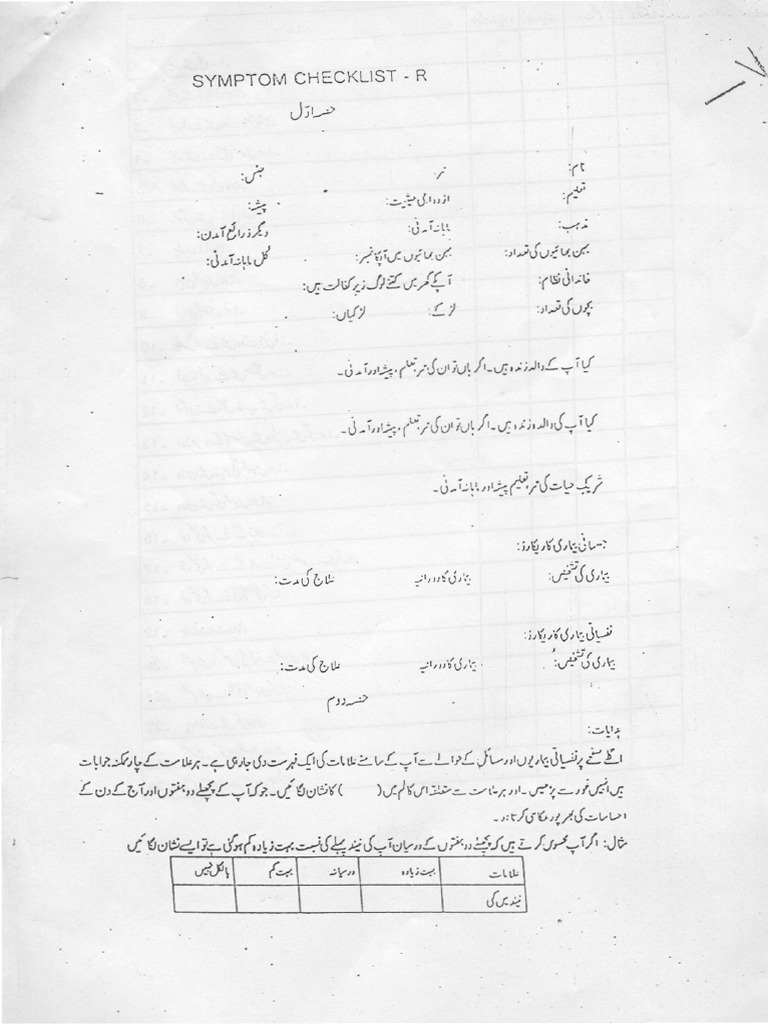 SYMPTOM CHECKLIST - R
حصہ اوّل
نام: عمر: جنس:
تعلیم: ازدواجی حیثیت: پیشہ:
مذہب: ماہانہ آمدنی: دیگر ذرائع آمدن:
بہن بھائیوں کی تعداد: بہن بھائیوں میں آپکا نمبر: کُل ماہانہ آمدنی:
خاندانی نظام: آپکے گھر میں کتنے لوگ زیر کفالت ہیں:
بچوں کی تعداد: لڑکے: لڑکیاں:
کیا آپ کے والد زندہ ہیں۔ اگر ہاں تو ان کی عمر، تعلیم، پیشہ اور آمدنی۔
کیا آپ کی والدہ زندہ ہیں۔ اگر ہاں تو ان کی عمر، تعلیم، پیشہ اور آمدنی۔
شریک حیات کی عمر، تعلیم پیشہ اور ماہانہ آمدنی۔
جسمانی بیماری کا ریکارڈ:
بیماری کی تشخیص: بیماری کا دورانیہ علاج کی مدت:
نفسیاتی بیماری کا ریکارڈ:
بیماری کی تشخیص: بیماری کا دورانیہ علاج کی مدت:
حصہ دوم
ہدایات:
اگلے صفحے پر نفسیاتی بیماریوں اور مسائل کے حوالے سے آپ کے سامنے علامات کی ایک فہرست دی جا رہی ہے۔ ہر علامت کے چار ممکنہ جوابات
ہیں انہیں غور سے پڑھیں۔ اور ہر علامت سے متعلقہ اس کالم میں ( ) کا نشان لگائیں۔ جو کہ آپ کے پچھلے دو ہفتوں اور آج کے دن کے
احساسات کی بھرپور عکاسی کرتا ہو۔
مثال: اگر آپ محسوس کرتے ہیں کہ پچھلے دو ہفتوں کے درمیان آپ کی نیند پہلے کی نسبت بہت زیادہ کم ہو گئی ہے تو ایسے نشان لگائیں
علامات بہت زیادہ درمیانہ بہت کم بالکل نہیں
نیند میں کمی